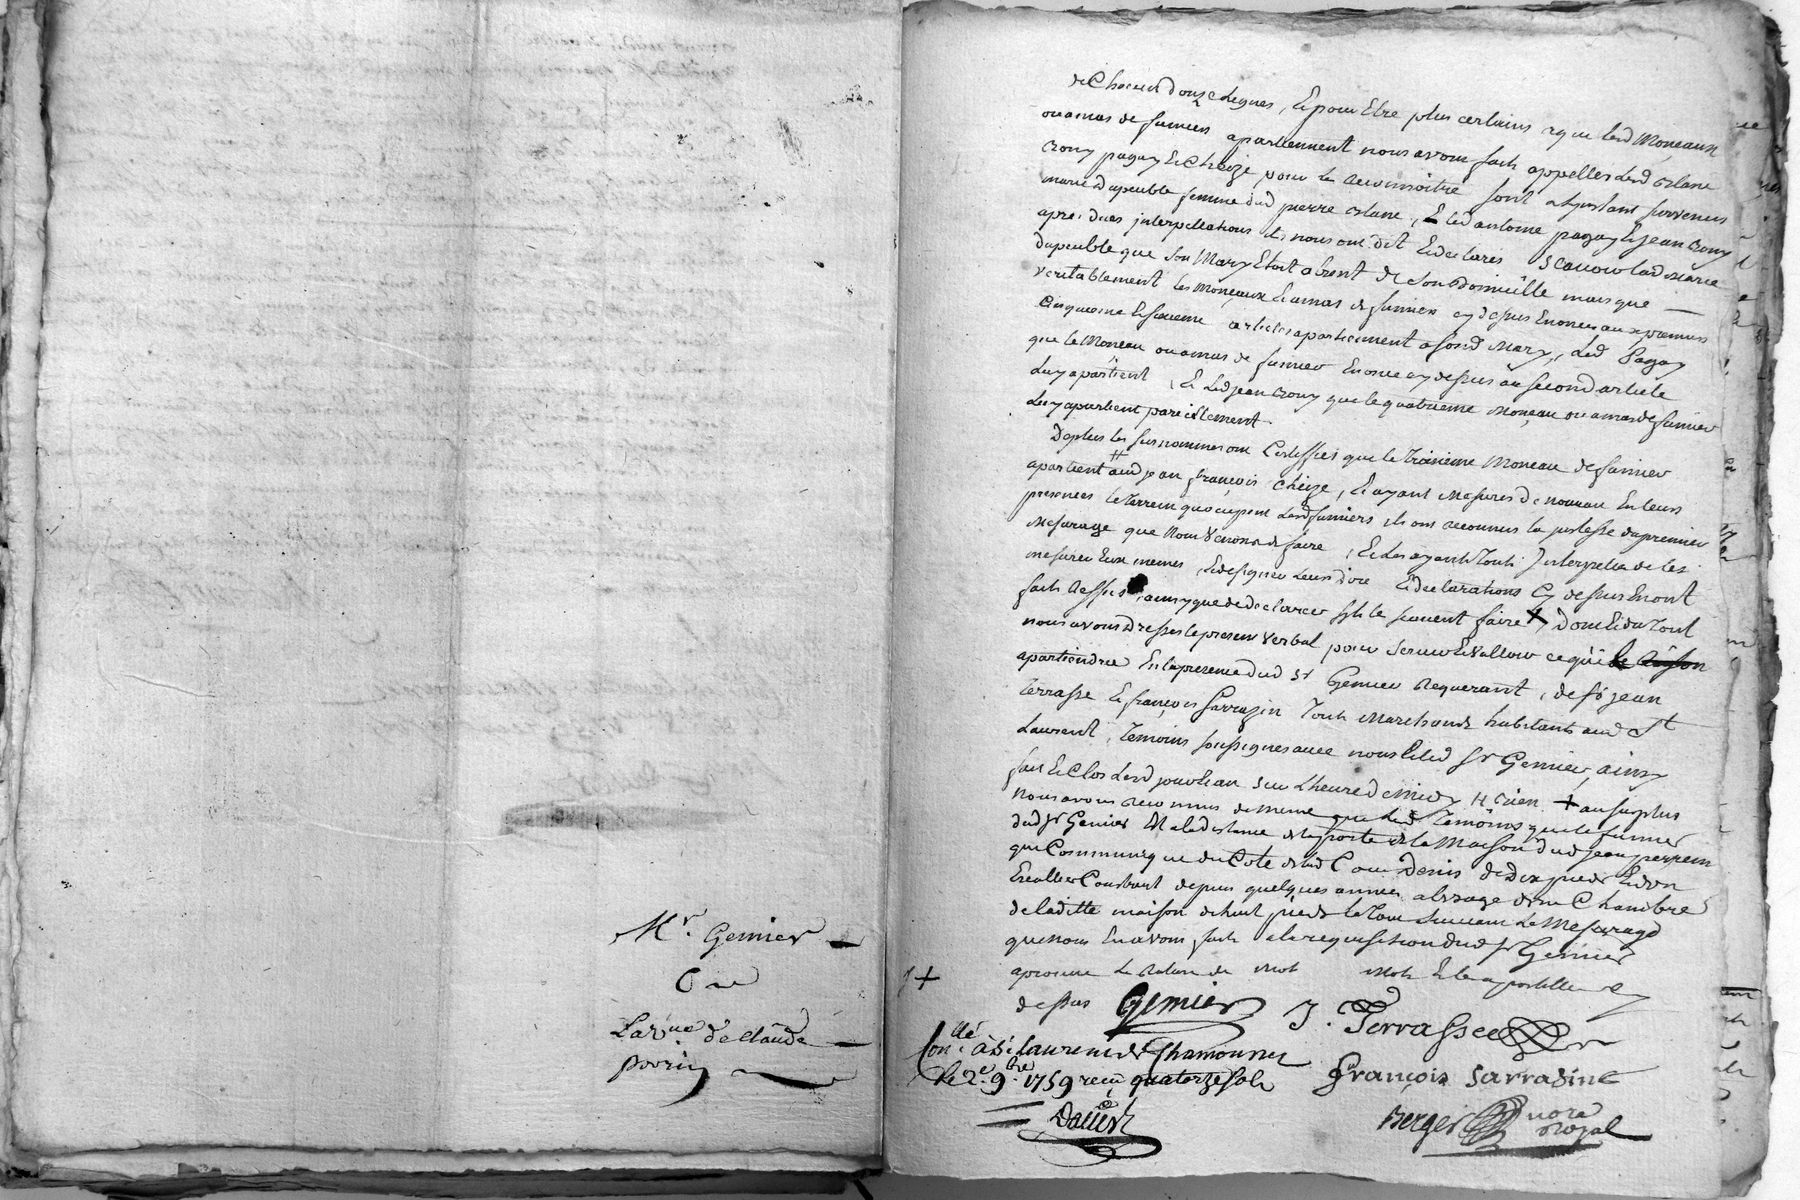 Mr. Gemier
C
La vve. de Claude
perrin
de Chacun donze Lignes, Et pour Etre plus certains a que lesd Monçeaux
ou amas de fumiers apartiennent nous avons fait appeller lesd
Crony pagay Et Cheize pour le reconnoitre sont a l'instant survenus
marie dupeuble femme dud pierre, Et led antoine pagay Et jean Crony
apres dues interpellations ils nous ont dit Et declarés Scavoir lad Marie
dupeuble que son Mary Etoit absent de son Domicille mais que
veritablement les Monçeaux Et amas de fumier cy dessus Enoncés aux premier
Cinquieme Et sixieme articles apartiennent a sond Mary, Led Pagay
que le Monçeau ou amas de fumier Enoncé cy dessus au second article
Luy apartient, Et Led jean Crony que le quatrieme Monçeau ou amas de fumier
Luy apartient pareillement.
De plus les surnommés ont Certiffiés que le troisieme Monçeau de fumier
apartient aud jean françois Cheize, Et ayant Mesurés de nouveau En leurs
presences le terrein quocupent Lesd fumiers ils ont reconnus la justesse du premier
Mesurage que Nous Venons de faire, Et Les ayants touts Interpellés de les
mesurer Eux memes, Et de signer Leurs dire Et declarations Cy dessus Enont
fait Refus, ainsy que de declarer s'ils le scavent faire + Dont Et du tout
nous avons Dressé le present verbal pour servir Et valloir ce qu'il
apartiendra En la presence dud Sr Gemier Requerant, de sr jean
Terrasse Et françois Sarrazin touts Marchands habitants aud St
Laurent, temoins soussignés avec nous Et led Sr Gemier, ainsy
fait Et Clos Lesd jour Et an sur L'heure de Midy + au surplus
nous avons reconnus de meme que Lesd temoins que le fumier
dud Sr Gemier Est a la distance de la porte de la Maison dud jean perrein
qui Communique du Coté de lad Cour Denis de Dix pieds Et d'un
Escallier Construit depuis quelques années a l'usage d'une Chambre
de laditte maison de huit pieds le tout suivant Le Mesurage
que nous En avons fait a la requisition dud Sr Gemier
aprouvé La Rature de Mots Et les apostilles
dessus Gemier J. Terrasse
Conllé. à St. Laurent de Chamousset
le 2e. 9bre 1759 reçu quatorze sols françois sarrasin
Berger nore
Royal